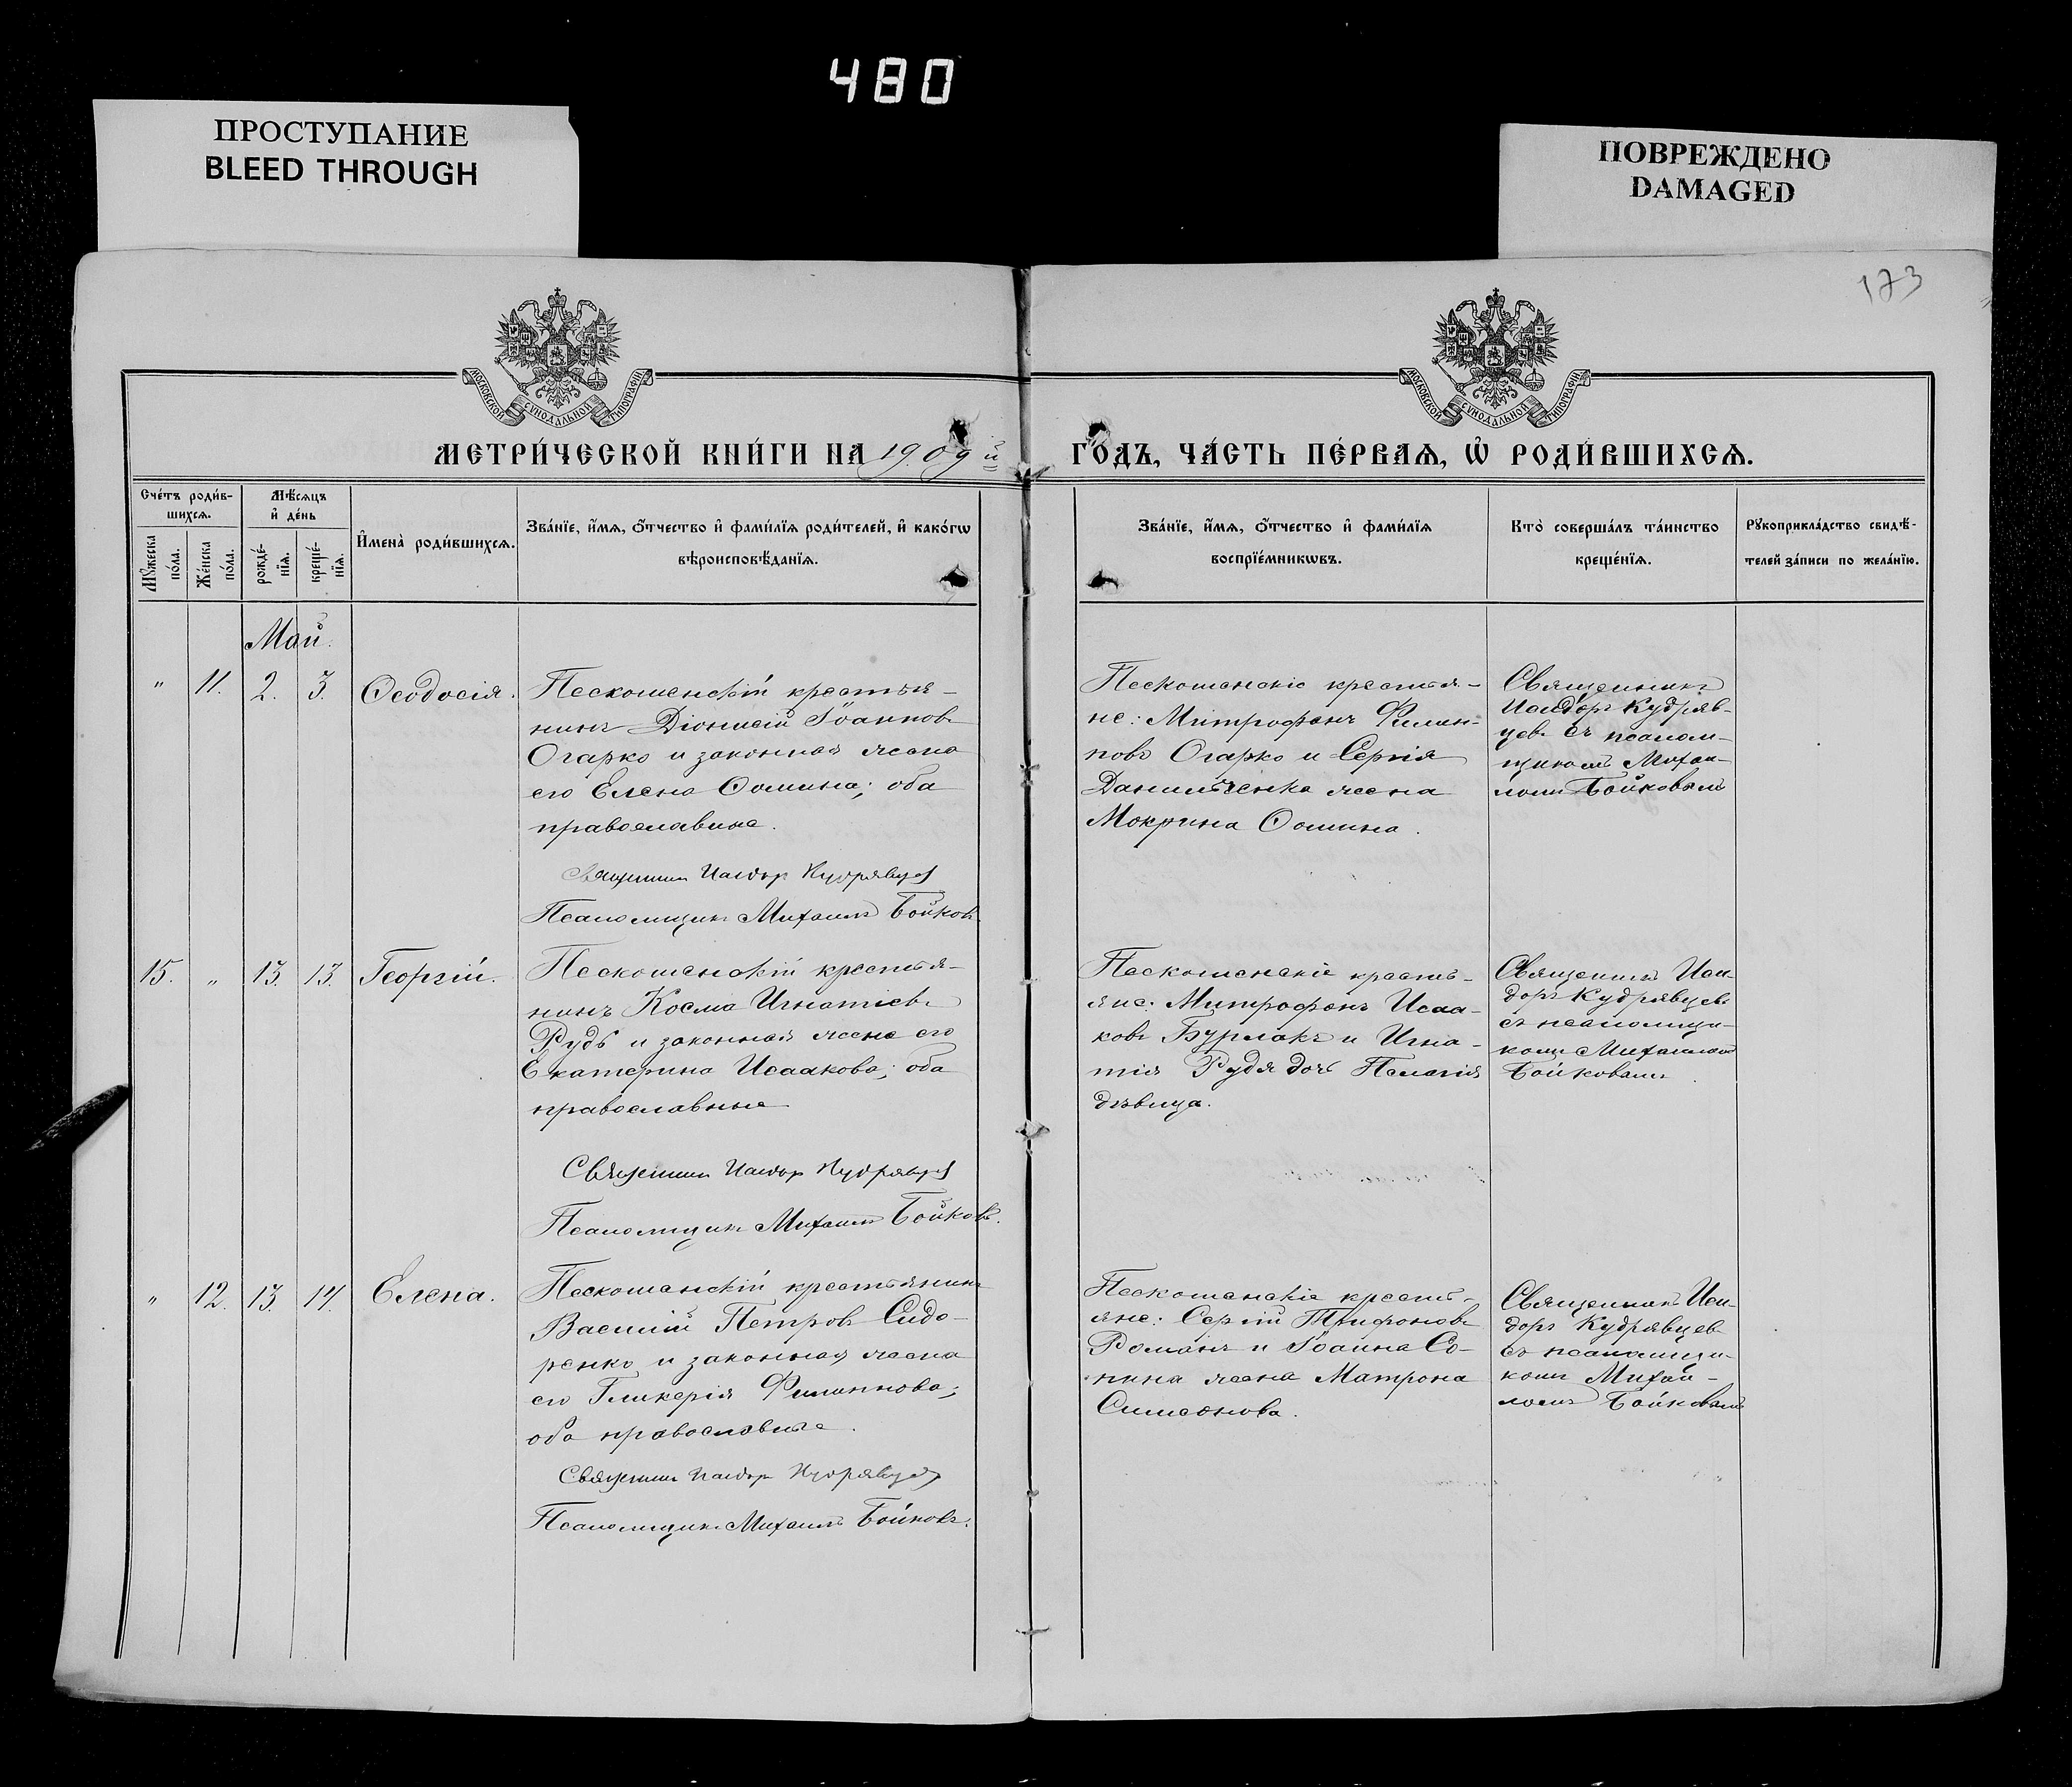 480
ПРОСТУПАНИЕ
BLEED THROUGH
ПОВРЕЖДЕНО
DAMAGED
173
МОСКОВСКОЙ СУНОДАЛЬНОЙ ТИПОГРАФІИ
МОСКОВСКОЙ СУНОДАЛЬНОЙ ТИПОГРАФІИ
МЕТРИ́ЧЕСКОЙ КНИ́ГИ НА 1909 й ГО́ДЪ, ЧА́СТЬ ПЕ́РВАѦ, Ѡ҆ РОДИ́ВШИХСѦ.
Сче́тъ роди́в-
шихсѧ.
Мѣ́сѧцъ
и҆ де́нь
И҆мена̀ роди́вшихсѧ.
Зва́нїе, и҆́мѧ, ѻ҆́тчество и҆ фами́лїѧ роди́телей, и҆ како́гѡ
вѣроисповѣ́данїѧ.
Мꙋ́жеска
по́ла.
Же́нска
по́ла.
рожде́-
нїѧ.
креще́-
нїѧ.
Зва́нїе, и҆́мѧ, ѻ҆́тчество и҆ фами́лїѧ
воспрїе́мникѡвъ.
Кто̀ соверша́лъ та́инство
креще́нїѧ.
Рꙋкоприкла́дство свидѣ́-
телей за́писи по жела́нїю.
Май.
" 11. 2. 3. Ѳеодосія.
Пескошанскій крестья-
нинъ Діонисій Іоанновъ
Огарко и законная жена
его Елена Ѳомина; оба
православные.
Священникъ Исидоръ Кудрявцевъ
Псаломщикъ Михаилъ Бойковъ
Пескошанскіе крестья-
не: Митрофанъ Филип-
повъ Огарко и Сергія
Данильченка жена
Мокрина Ѳомина.
Священникъ
Исидоръ Кудряв-
цевъ съ псалом-
щикомъ Михаи-
ломъ Бойковымъ
15. " 13. 13. Георгій.
Пескошанскій крестья-
нинъ Косма Игнатіевъ
Рудь и законная жена его
Екатерина Исаакова; оба
православные
Священникъ Исидоръ Кудрявцевъ
Псаломщикъ Михаилъ Бойковъ.
Пескошанскіе кресть-
яне: Митрофанъ Исаа-
ковъ Бурлакъ и Игна-
тія Рудя дочь Пелагія
дѣвица.
Священникъ Иси-
доръ Кудрявцевъ
съ псаломщи-
комъ Михаиломъ
Бойковымъ
" 12. 13. 14. Елена.
Пескошанскій крестьянинъ
Василій Петровъ Сидо-
ренко и законная жена
его Гликерія Филиппова;
оба православные.
Священникъ Исидоръ Кудрявцевъ
Псаломщикъ Михаилъ Бойковъ.
Пескошанскіе кресть-
яне: Сергій Трифоновъ
Романъ и Іоанна Со-
пина жена Матрона
Симеонова.
Священникъ Иси-
доръ Кудрявцевъ
съ псаломщи-
комъ Михаи-
ломъ Бойковымъ